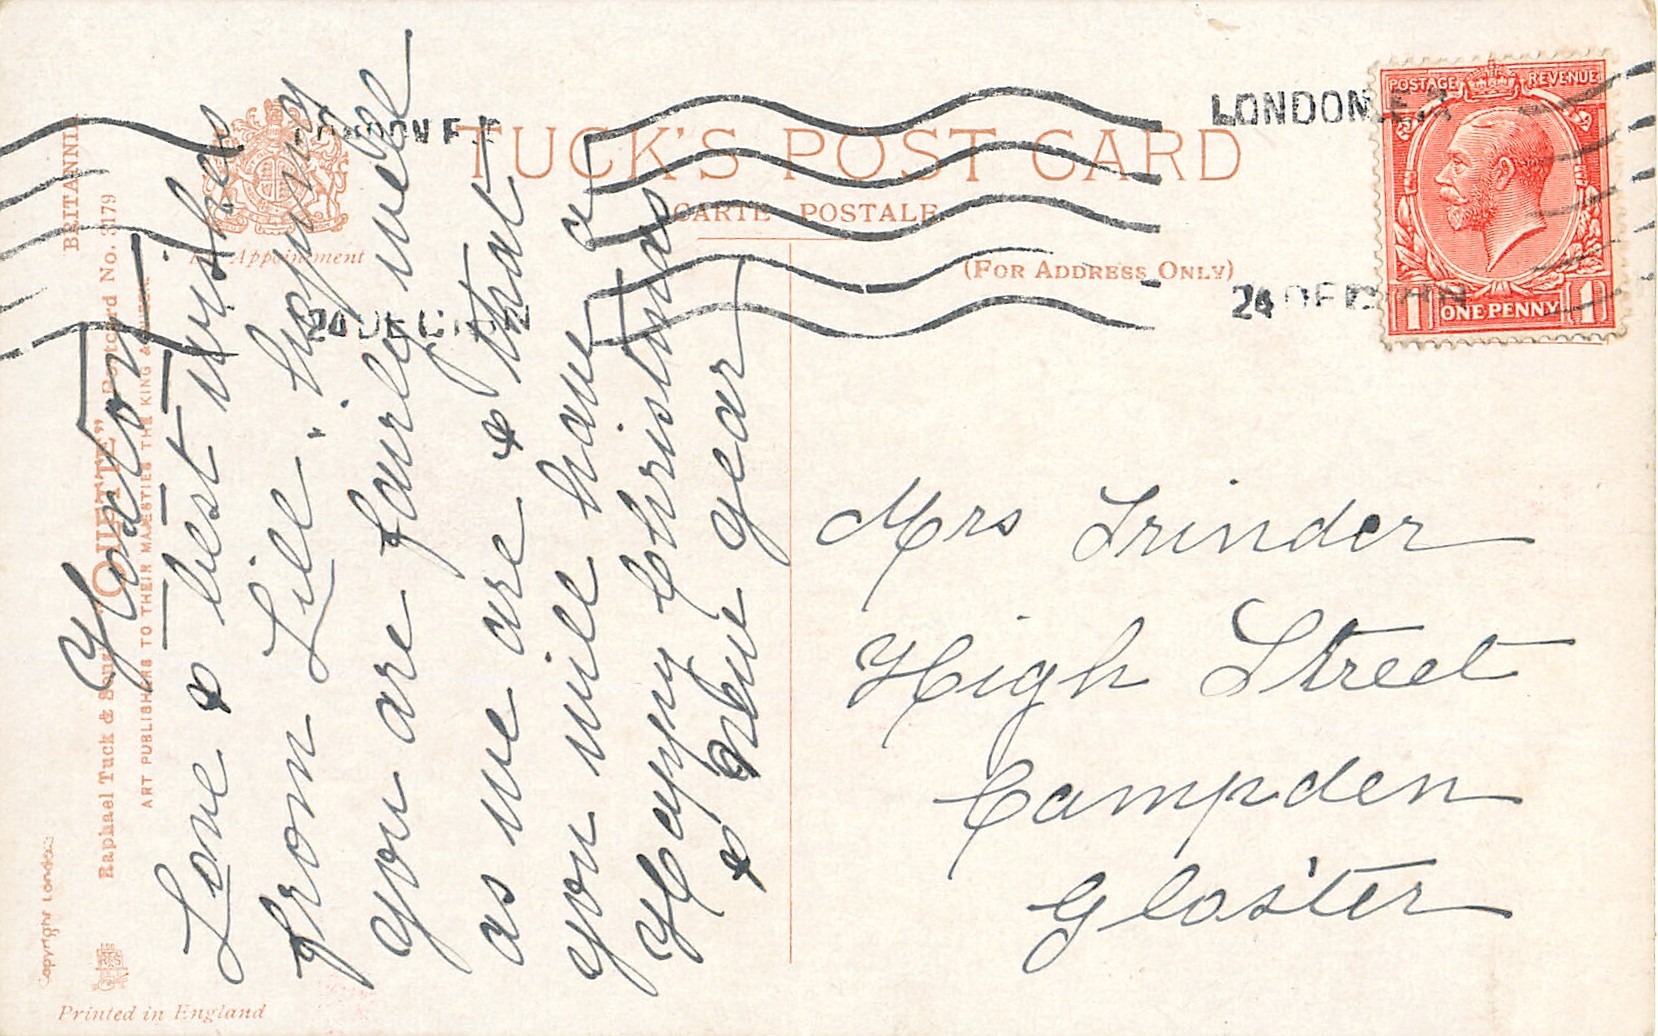 TUCK'S POST CARD
CARTE POSTALE
(FOR ADDRESS ONLY)
By Appointment
BRITANNIA
Raphael Tuck & Sons' "OILETTE" Postcard No. 3179
ART PUBLISHERS TO THEIR MAJESTIES THE KING & QUEEN.
Copyright London
Printed in England
LONDON
24 DEC
LONDON
24 DEC
POSTAGE REVENUE
1 ONE PENNY 1
Love & best wishes
from Lill. hoping
you are fairly well
as we are & that
you will have a
Happy Christmas
& New Year
Mrs Trinder
High Street
Campden
Glos'ter